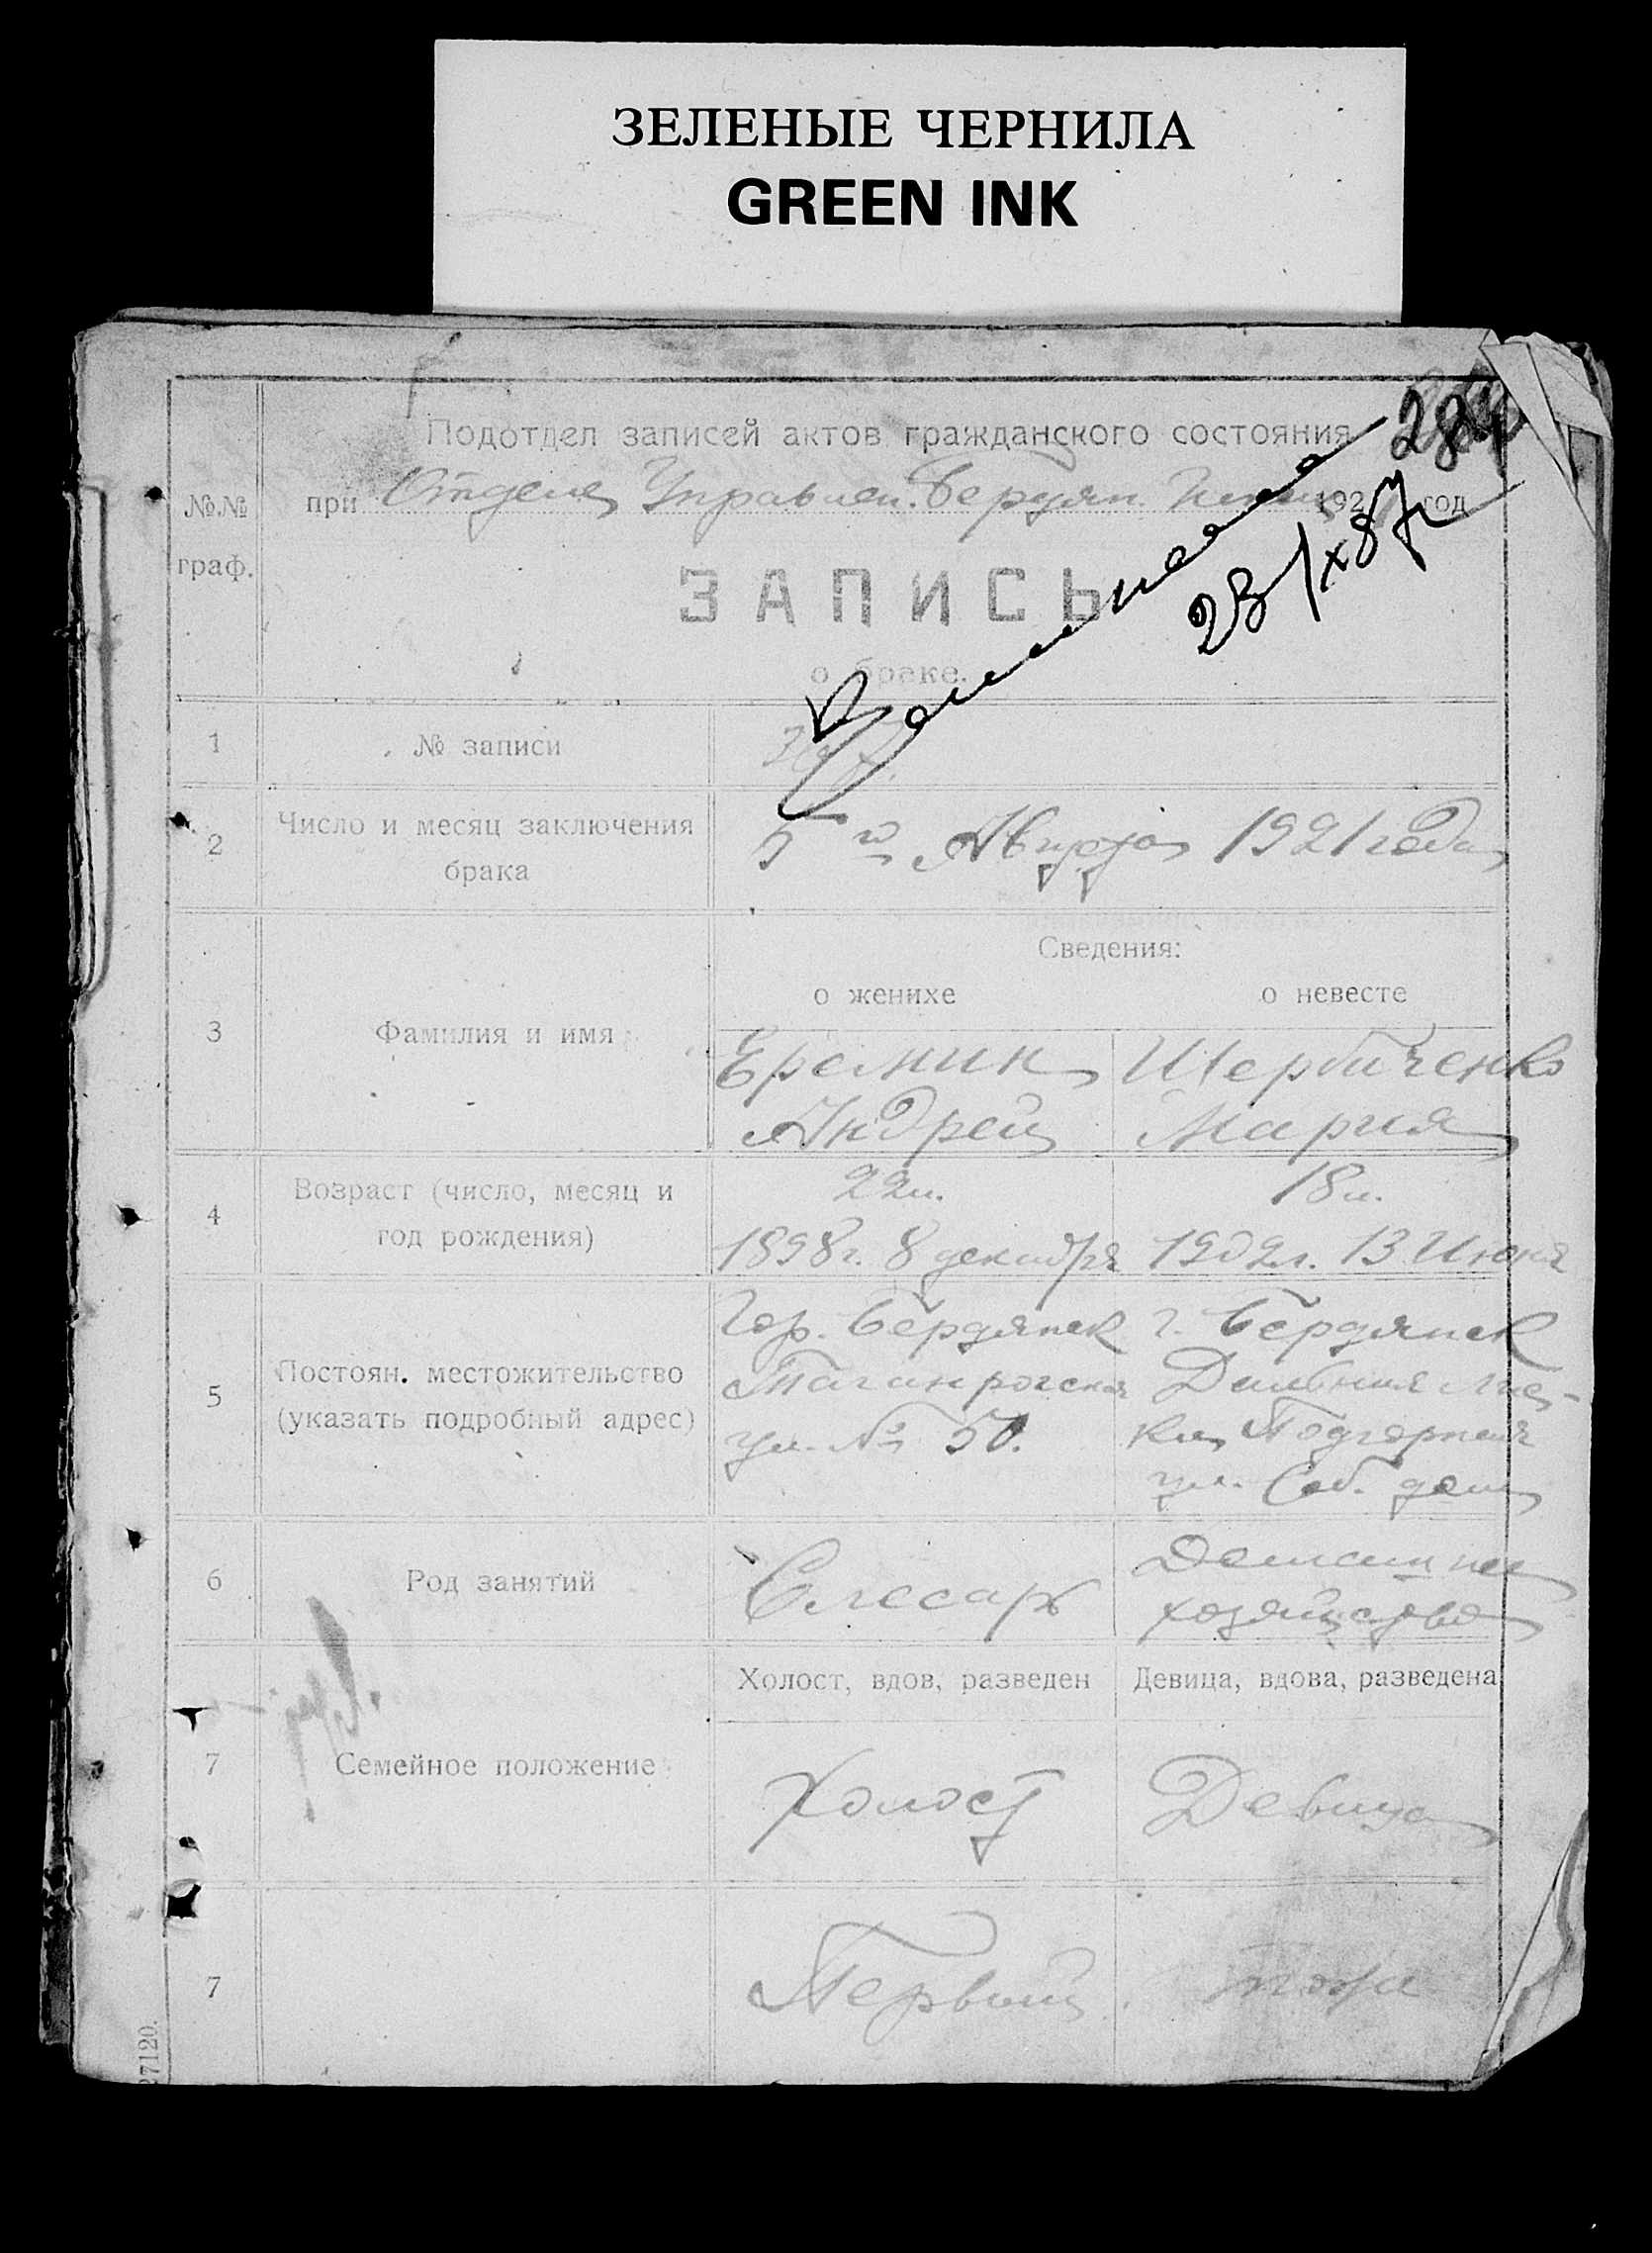 ЗЕЛЕНЫЕ ЧЕРНИЛА
GREEN INK
284
Подотдел записей актов гражданского состояния
№№ граф.
при Отделе Управлен. Бердян. 192 год
23/IX 87
ЗАПИСЬ
о браке.
1 № записи
2 Число и месяц заключения брака 5го Августа 1921 года
Сведения:
о женихе о невесте
3 Фамилия и имя
Еремин Щербиченко
Андрей Мария
4 Возраст (число, месяц и год рождения)
22 л. 18 л.
1898 г. 8 декабря 1902 г. 13 Июня
5 Постоян. местожительство (указать подробный адрес)
Гор. Бердянск г. Бердянск
Таганрогская
ул. № 50. Подгорная
ул. Соб. дом
6 Род занятий
Слесарь Домашнее
хозяйство
Холост, вдов, разведен Девица, вдова, разведена
7 Семейное положение
Холост Девица
7 Первый тоже
27120.